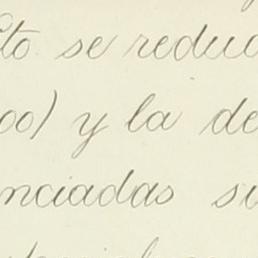 to se reduc
00) y la de
nciadas su